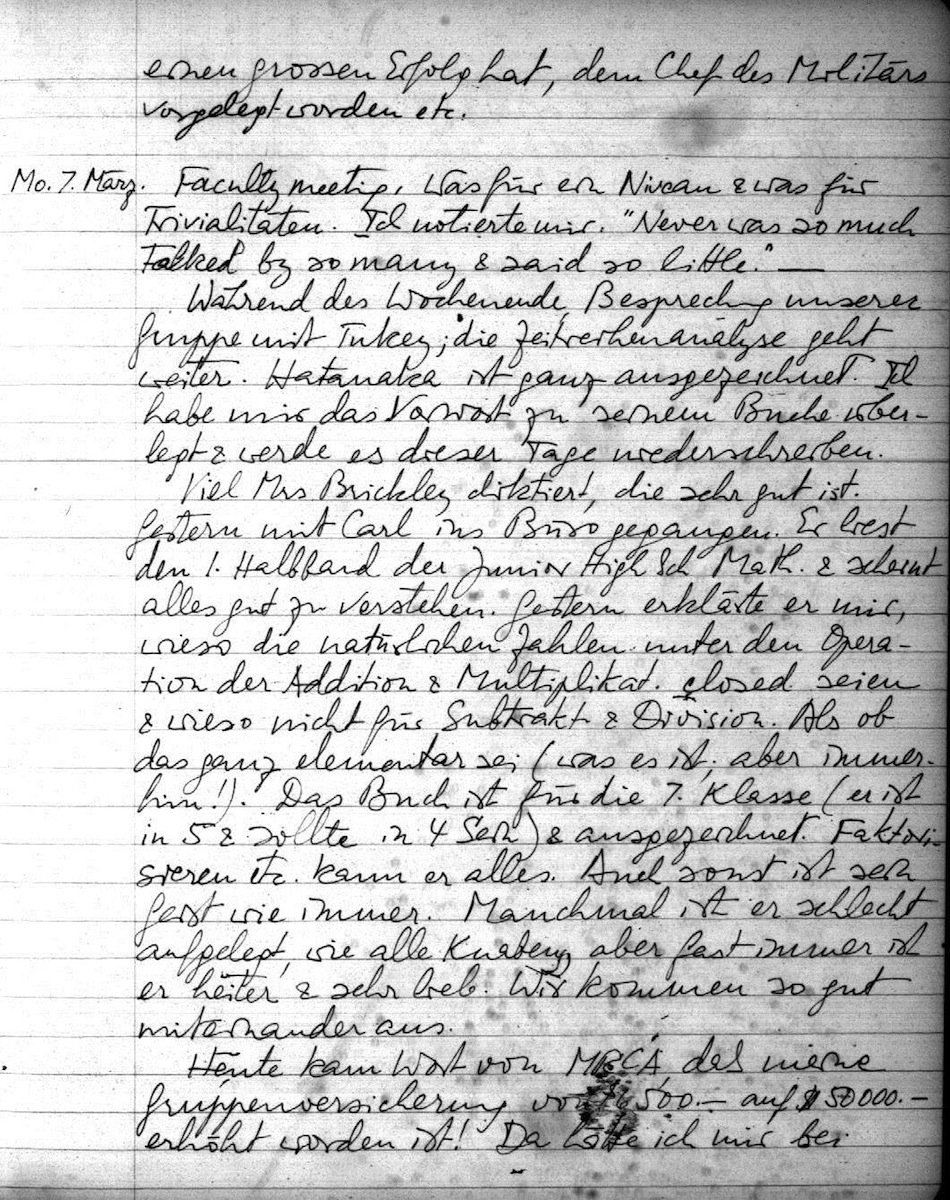 einen grossen Erfolg hat, dem Chef des Militärs
vorgelegt worden etc.
Mo. 7. März. Faculty meeting. Was für ein Niveau & was für
Trivialitäten. Ich notierte mir. "Never was so much
talked by so many & said so little." —
Während des Wochenende, Besprechung unserer
Gruppe mit Tukey; die Zeitreihenanalyse geht
weiter. Hatanaka ist ganz ausgezeichnet. Ich
habe mir das Vorwort zu seinem Buche über-
legt & werde es dieser Tage niederschreiben.
Viel Mrs Brickley diktiert, die sehr gut ist.
Gestern mit Carl ins Büro gegangen. Er liest
den 1. Halbband der Junior High Sch Math. & scheint
alles gut zu verstehen. Gestern erklärte er mir,
wieso die natürlichen Zahlen unter den Opera-
tion der Addition & Multiplikat. closed seien
& wieso nicht für Subtrakt & Division. Als ob
das ganz elementar sei (was es ist, aber immer-
hin!). Das Buch ist für die 7. Klasse (er ist
in 5 & sollte in 4 sein) & ausgezeichnet. Faktori-
sieren etc. kann er alles. Auch sonst ist sein
Geist wie immer. Manchmal ist er schlecht
aufgelegt, wie alle Knaben, aber fast immer ist
er heiter & sehr lieb. Wir kommen so gut
miteinander aus.
Heute kam Wort von MRCA, daß meine
Gruppenversicherung von 500.— auf $50000.—
erhöht worden ist! Da hätte ich mir bei